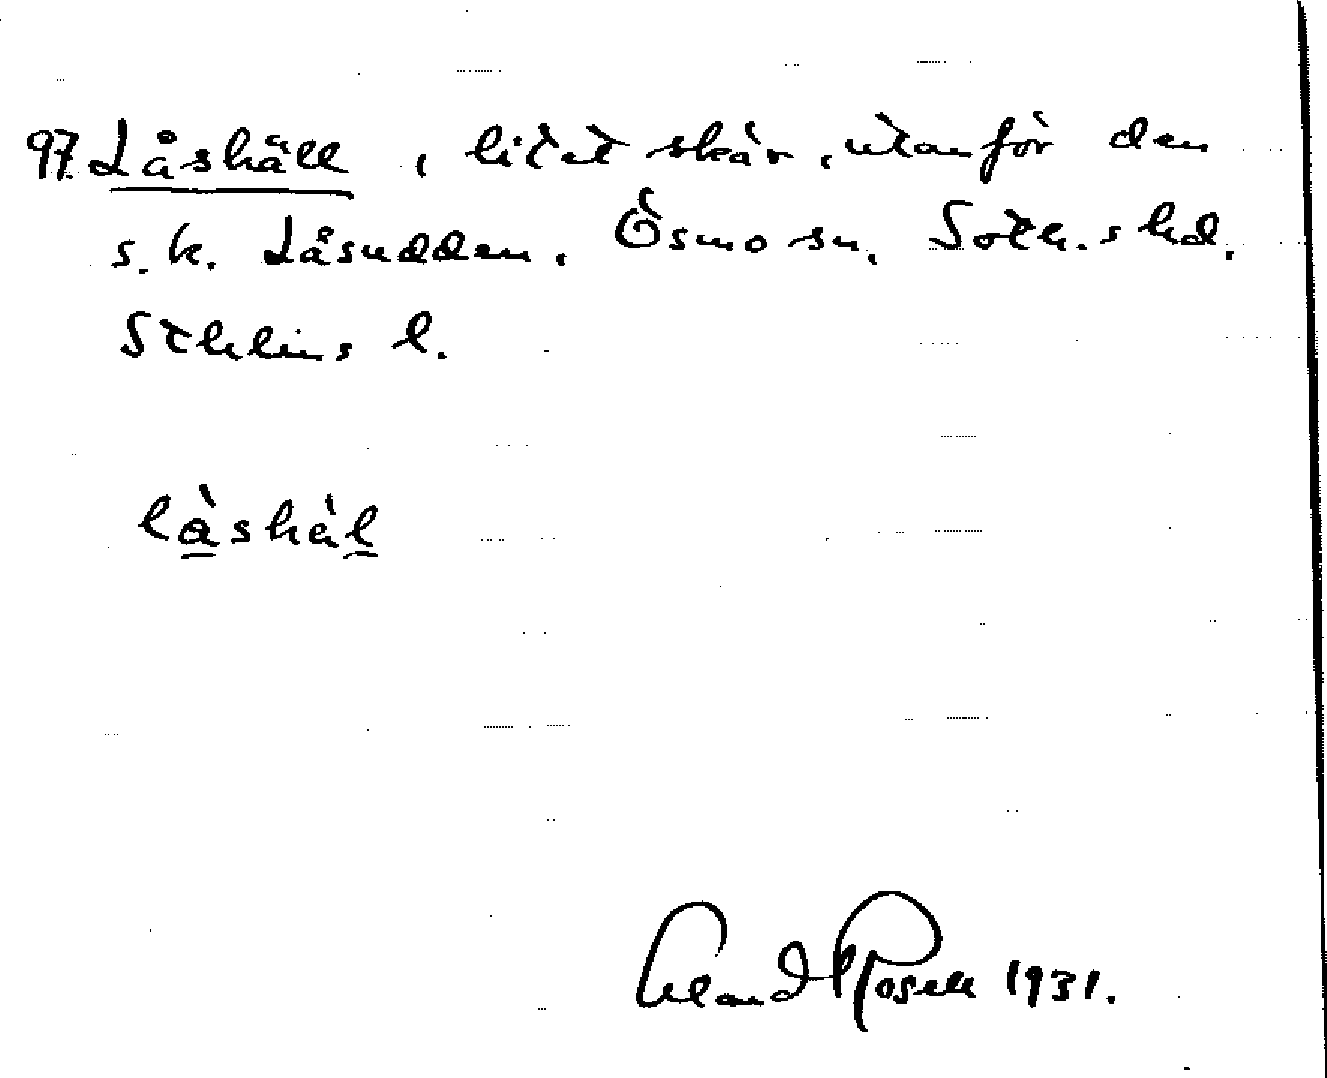 97. Låshäll, litet skär, utanför den
s.k. Låsudden. Ösmo sn, Soth.s hd.
Sthlms l.
làshäl
Rosell 1931.